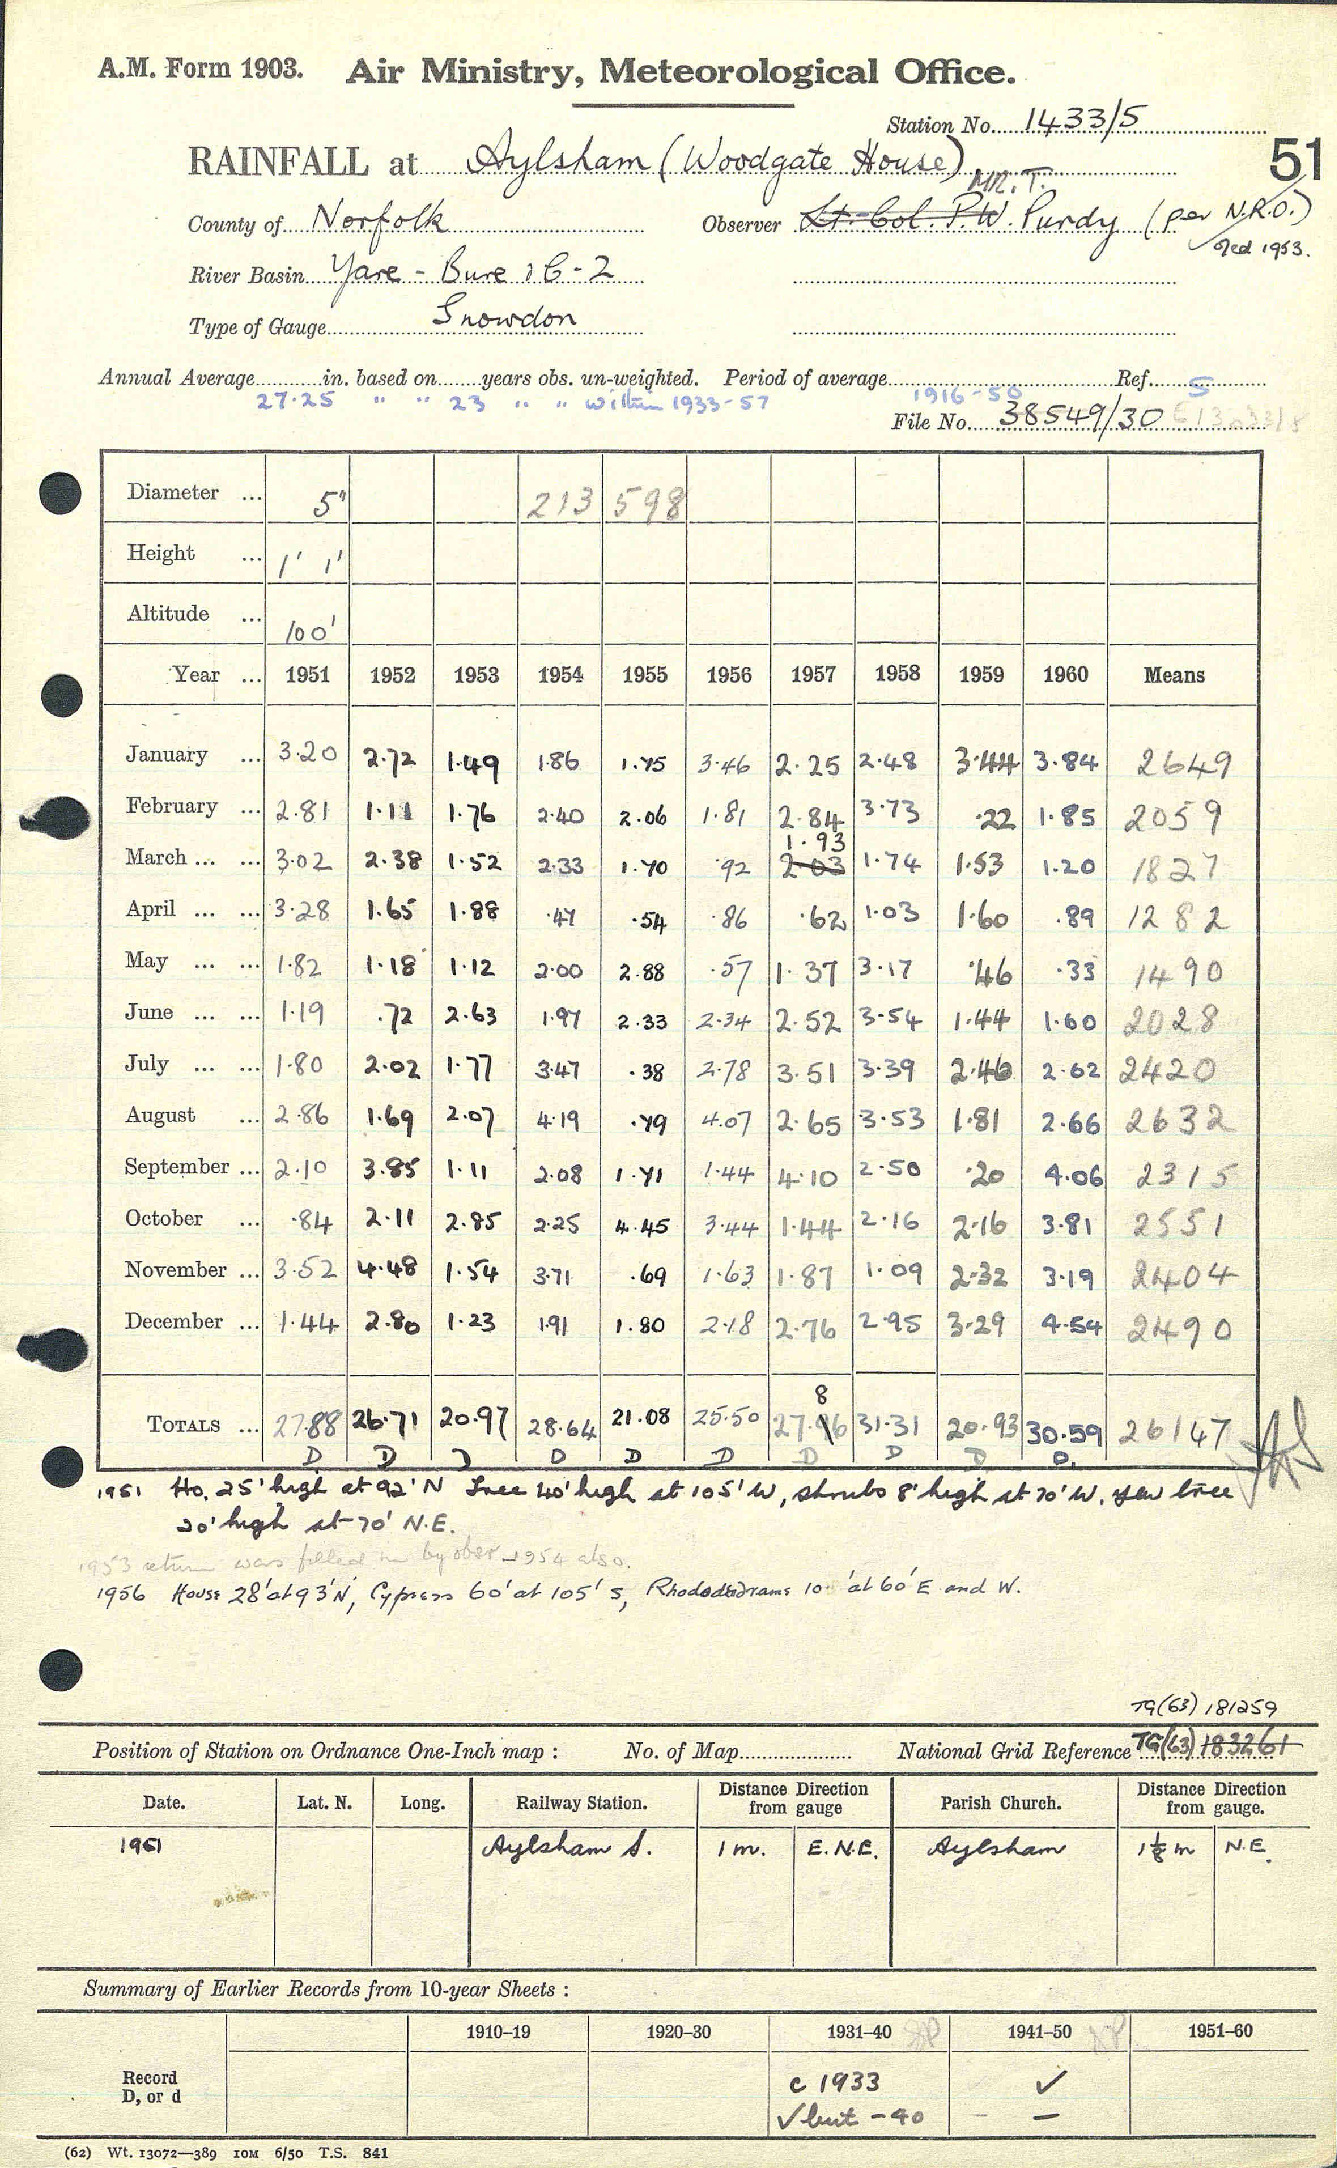 A.M. Form 1903. Air Ministry, Meteorological Office.
Station No. 1433/5
RAINFALL at Aylsham (Woodgate House)
51
MR. T.
County of Norfolk Observer Lt. Col. P.W. Purdy (per N.R.O.)
River Basin Yare - Bure 1C-2
Type of Gauge Snowdon
Annual Average in. based on years obs. un-weighted. Period of average Ref. S
27.25 " " 23 " " within 1933-57 1916-50
File No. 38549/30
Diameter ... 5" 213 598
Height ... 1' 1'
Altitude ... 100'
Year ... 1951 1952 1953 1954 1955 1956 1957 1958 1959 1960 Means
January ... 3.20 2.72 1.49 1.86 1.75 3.46 2.25 2.48 3.44 3.84 2649
February ... 2.81 1.11 1.76 2.40 2.06 1.81 2.84 3.73 .22 1.85 2059
1.93
March ... ... 3.02 2.38 1.52 2.33 1.70 .92 2.03 1.74 1.53 1.20 1827
April ... ... 3.28 1.65 1.88 .47 .54 .86 .62 1.03 1.60 .89 1282
May ... ... 1.82 1.18 1.12 2.00 2.88 .57 1.37 3.17 .46 .33 1490
June ... ... 1.19 .72 2.63 1.97 2.33 2.34 2.52 3.54 1.44 1.60 2028
July ... ... 1.80 2.02 1.77 3.47 .38 2.78 3.51 3.39 2.46 2.62 2420
August ... 2.86 1.69 2.07 4.19 .79 4.07 2.65 3.53 1.81 2.66 2632
September ... 2.10 3.85 1.11 2.08 1.71 1.44 4.10 2.50 .20 4.06 2315
October ... .84 2.11 2.85 2.25 4.45 3.44 1.44 2.16 2.16 3.81 2551
November ... 3.52 4.48 1.54 3.71 .69 1.63 1.87 1.09 2.32 3.19 2404
December ... 1.44 2.80 1.23 1.91 1.80 2.18 2.76 2.95 3.29 4.54 2490
8
TOTALS ... 27.88 26.71 20.97 28.64 21.08 25.50 27.96 31.31 20.93 30.59 26147
D D D D D D D D D D.
1951 Ho. 25' high at 92' N Tree 40' high at 105' W, shrubs 8' high at 70' W. yew tree
20' high at 70' N.E.
1953 return was filled in by obser 1954 also.
1956 House 28' at 93' N, Cypress 60' at 105' S, Rhododendrams 10' at 60' E and W.
TG(63) 181259
Position of Station on Ordnance One-Inch map : No. of Map National Grid Reference TG(63) 183261
Date. Lat. N. Long. Railway Station. Distance Direction from gauge Parish Church. Distance Direction from gauge.
1951 Aylsham S. 1 m. E.N.E. Aylsham 1⅛ m N.E.
Summary of Earlier Records from 10-year Sheets :
1910–19 1920–30 1931–40 1941–50 1951–60
Record D, or d c 1933 ✓
✓ but - 40 - —
(62) Wt. 13072—389 10M 6/50 T.S. 841